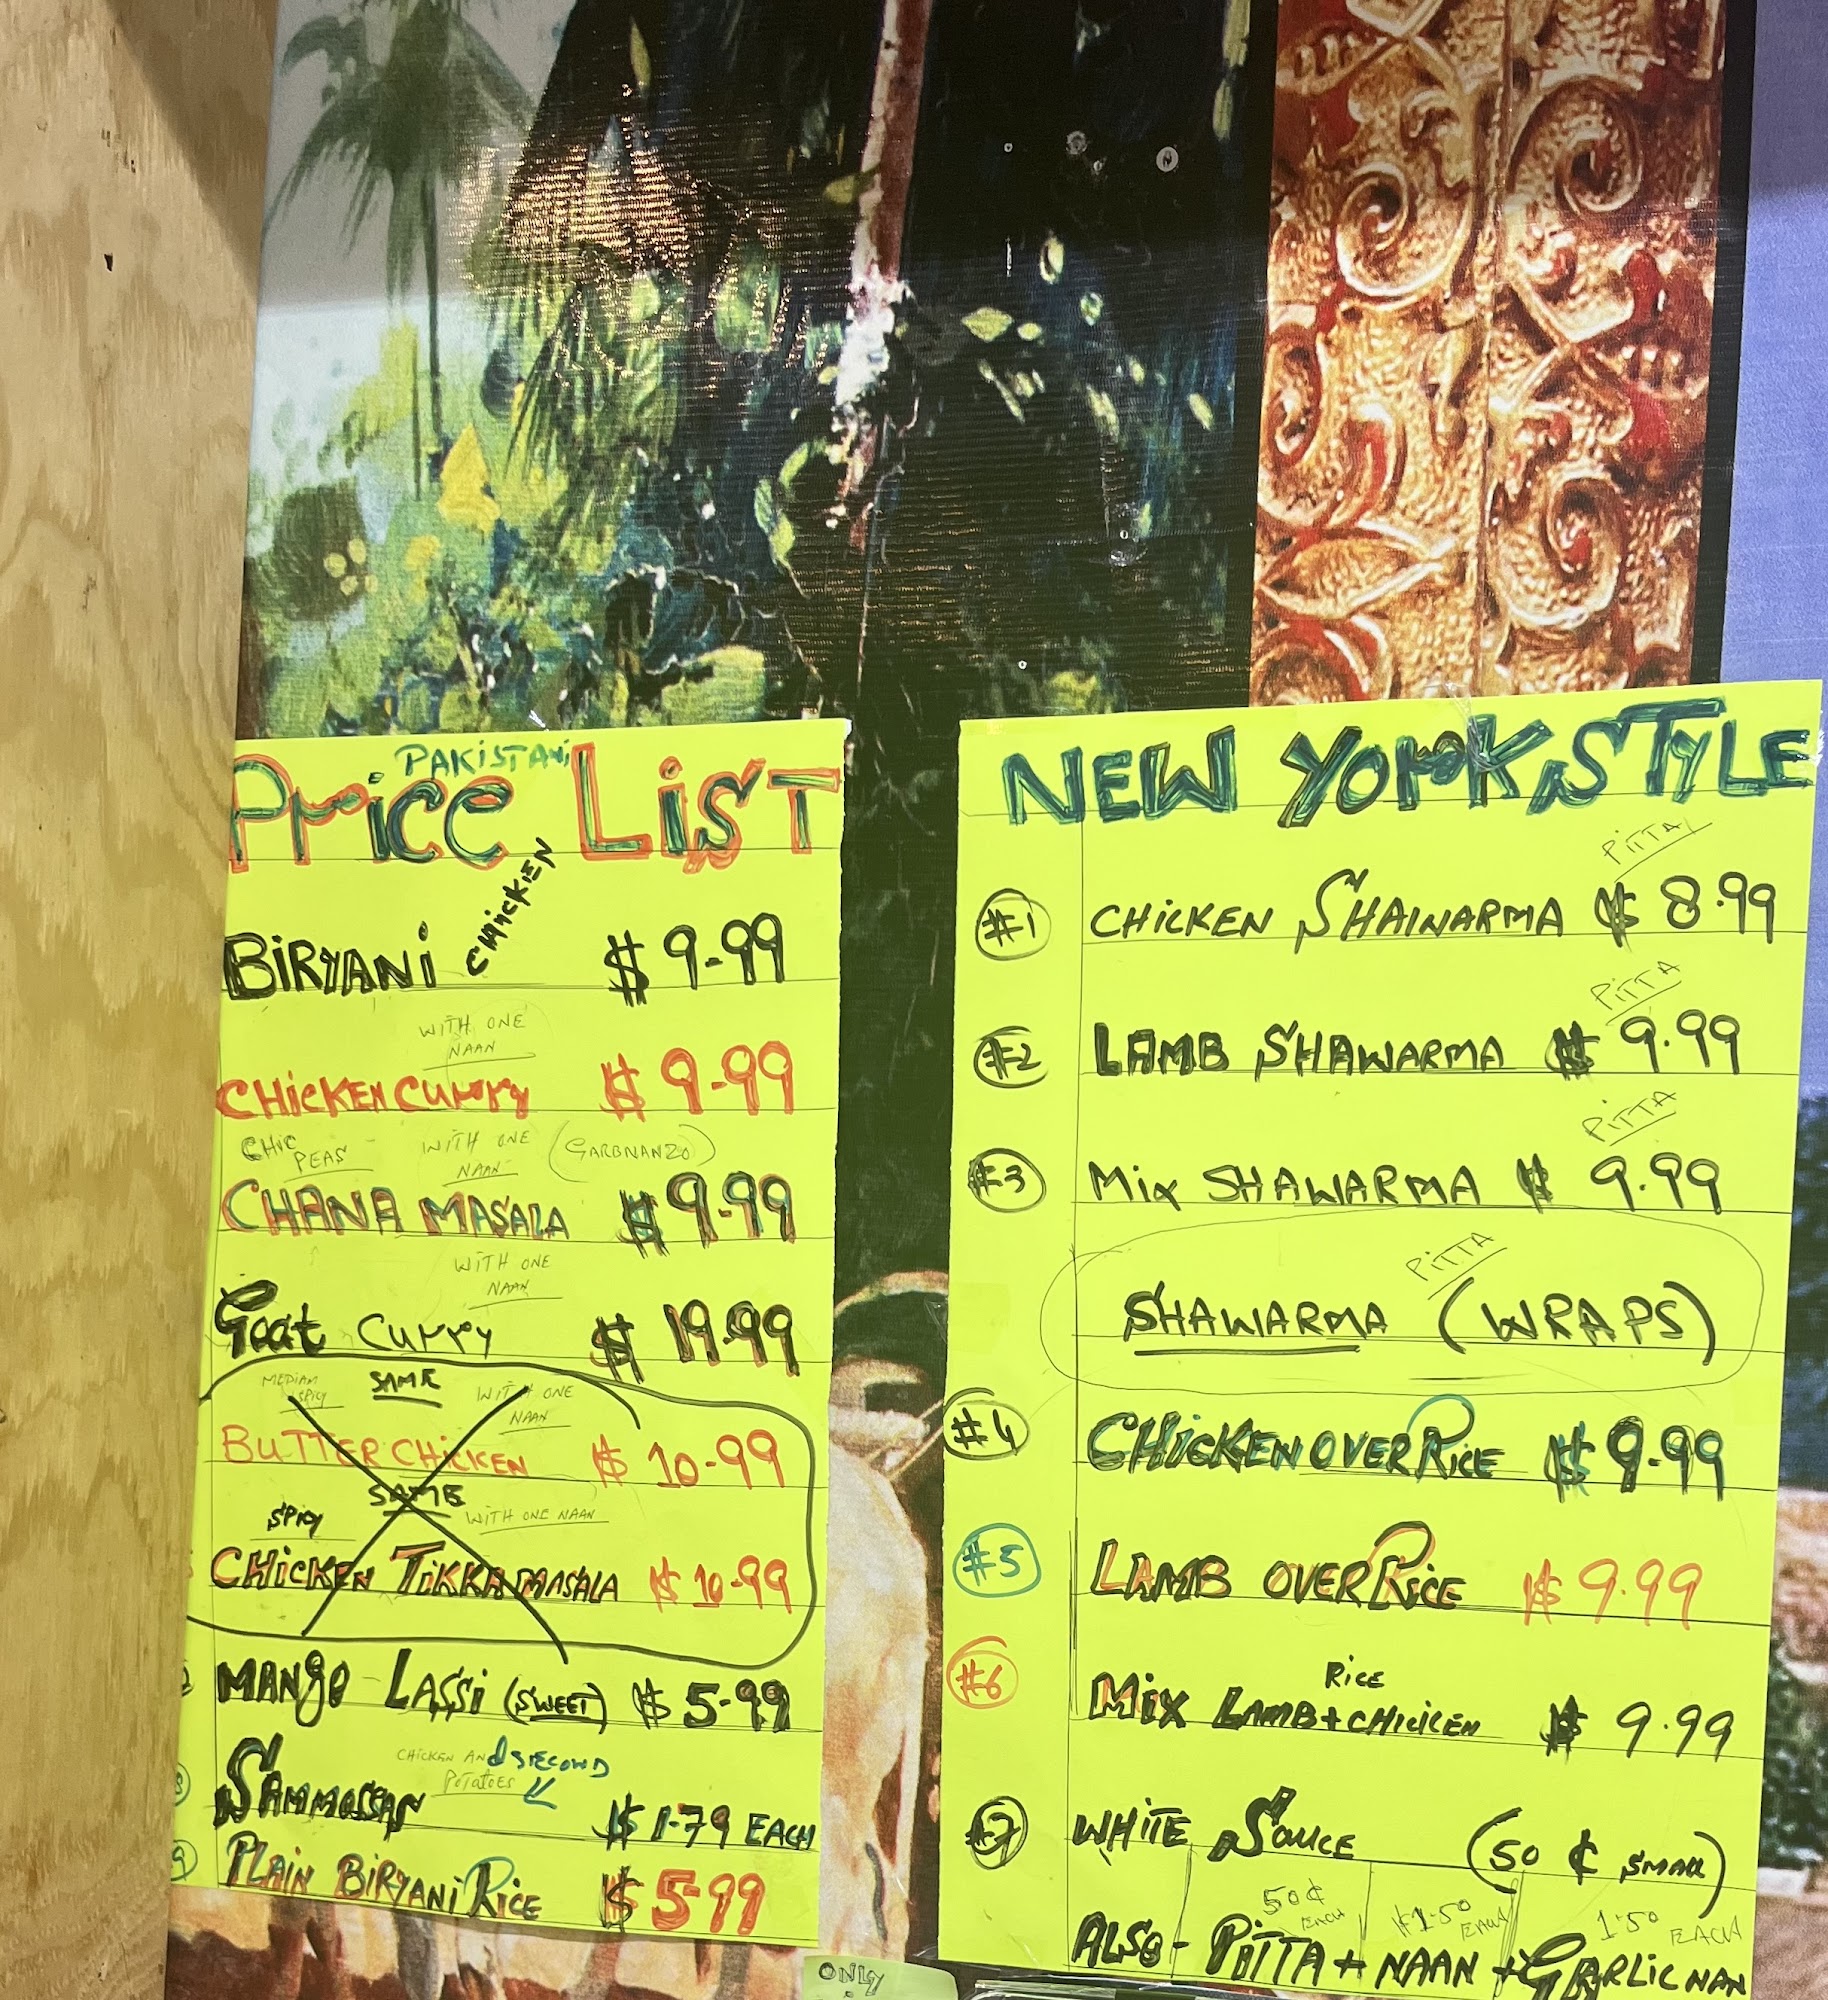 PAKISTANi
PriCe LiST
BiRYANi CHiCKEN $ 9-99
WITH ONE
NAAN
CHiCKEN CUrry $ 9-99
CHIC PEAS WITH ONE NAAN (GARBNANZO)
CHANA MASALA $ 9-99
WITH ONE
NAAN
Goat Curry $ 19-99
MEDIAM SPICY SAME WITH ONE NAAN
BUTTER CHiCKEN $ 10-99
SAME
SPICY WITH ONE NAAN
CHiCKEN TiKKA MASALA $ 10-99
MANgO LASSi (SWEET) $ 5-99
CHICKEN AND SECOND
POTATOES
SAMMOSSAN $ 1-79 EACH
8
9 PLAIN BiRYANi RiCE $ 5-99
NEW YOrK STYLE
PITTA
#1 CHiCKEN SHAWARMA $ 8.99
PITTA
#2 LAMB SHAWARMA $ 9.99
PITTA
#3 Mix SHAWARMA $ 9.99
PITTA
SHAWARMA (WRAPS)
#4 CHiCKEN OVER RiCE $ 9-99
#5 LAMB OVER RiCE $ 9.99
RiCE
#6 Mix LAMB+CHiCKEN $ 9.99
#7 WHiTE SAUCE (50 ¢ SMALL)
50¢ EACH $1.50 EACH 1.50 EACH
ALSO - PiTTA + NAAN + GARLIC NAN
ONLY